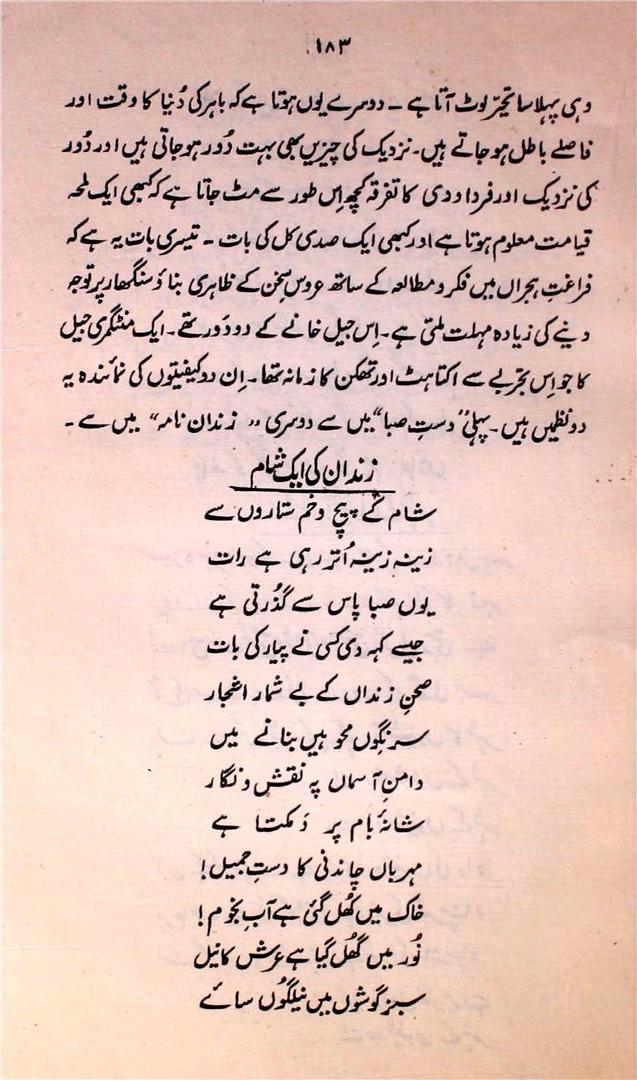 ۱۸۳
وہی پہلا سا تحیّر لوٹ آتا ہے ۔ دوسرے یوں ہوتا ہے کہ باہر کی دُنیا کا وقت اور
فاصلے باطل ہو جاتے ہیں۔ نزدیک کی چیزیں بھی بہت دُور ہو جاتی ہیں اور دُور
کی نزدیک اور فردا و دی کا تفرقہ کچھ اِس طور سے مٹ جاتا ہے کہ کبھی ایک لمحہ
قیامت معلوم ہوتا ہے اور کبھی ایک صدی کل کی بات ۔ تیسری بات یہ ہے کہ
فراغتِ ہجراں میں فکر و مطالعہ کے ساتھ عروسِ سخن کے ظاہری بناؤ سنگھار پر توجہ
دینے کی زیادہ مہلت ملتی ہے۔ اِس جیل خانے کے دو دَور تھے۔ ایک منٹگمری جیل
کا جو اِس تجربے سے اکتاہٹ اور تھکن کا زمانہ تھا۔ اِن دو کیفیتوں کی نمائندہ یہ
دو نظمیں ہیں۔ پہلی ”دستِ صبا“ میں سے دوسری ”زندان نامہ“ میں سے ۔
زندان کی ایک شام
شام کے پیچ و خم ستاروں سے
زینہ زینہ اُتر رہی ہے رات
یوں صبا پاس سے گذرتی ہے
جیسے کہہ دی کسی نے پیار کی بات
صحنِ زنداں کے بے شمار اشجار
سرنگوں محو ہیں بنانے میں
دامنِ آسماں پہ نقش و نگار
شانۂ بام پر دَمکتا ہے
مہرباں چاندنی کا دستِ جمیل!
خاک میں گھُل گئی ہے آبِ نجوم!
نُور میں گھُل گیا ہے عرش کا نیل
سبز گوشوں میں نیلگوں سائے